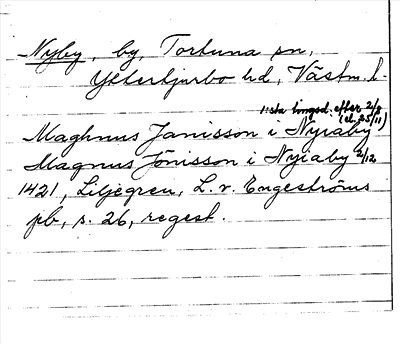 Nyby, by, Tortuna sn,
Ytterbjurbo hd, Västm. l.
1:sta tingsd. efter 2/9
(el. 25/11)
Maghnus Janisson i Nyraby
Magnus Jönisson i Nyiaby 2/12
1421, Liljegren, L. v. Engeströms
pb, s. 26, regest.